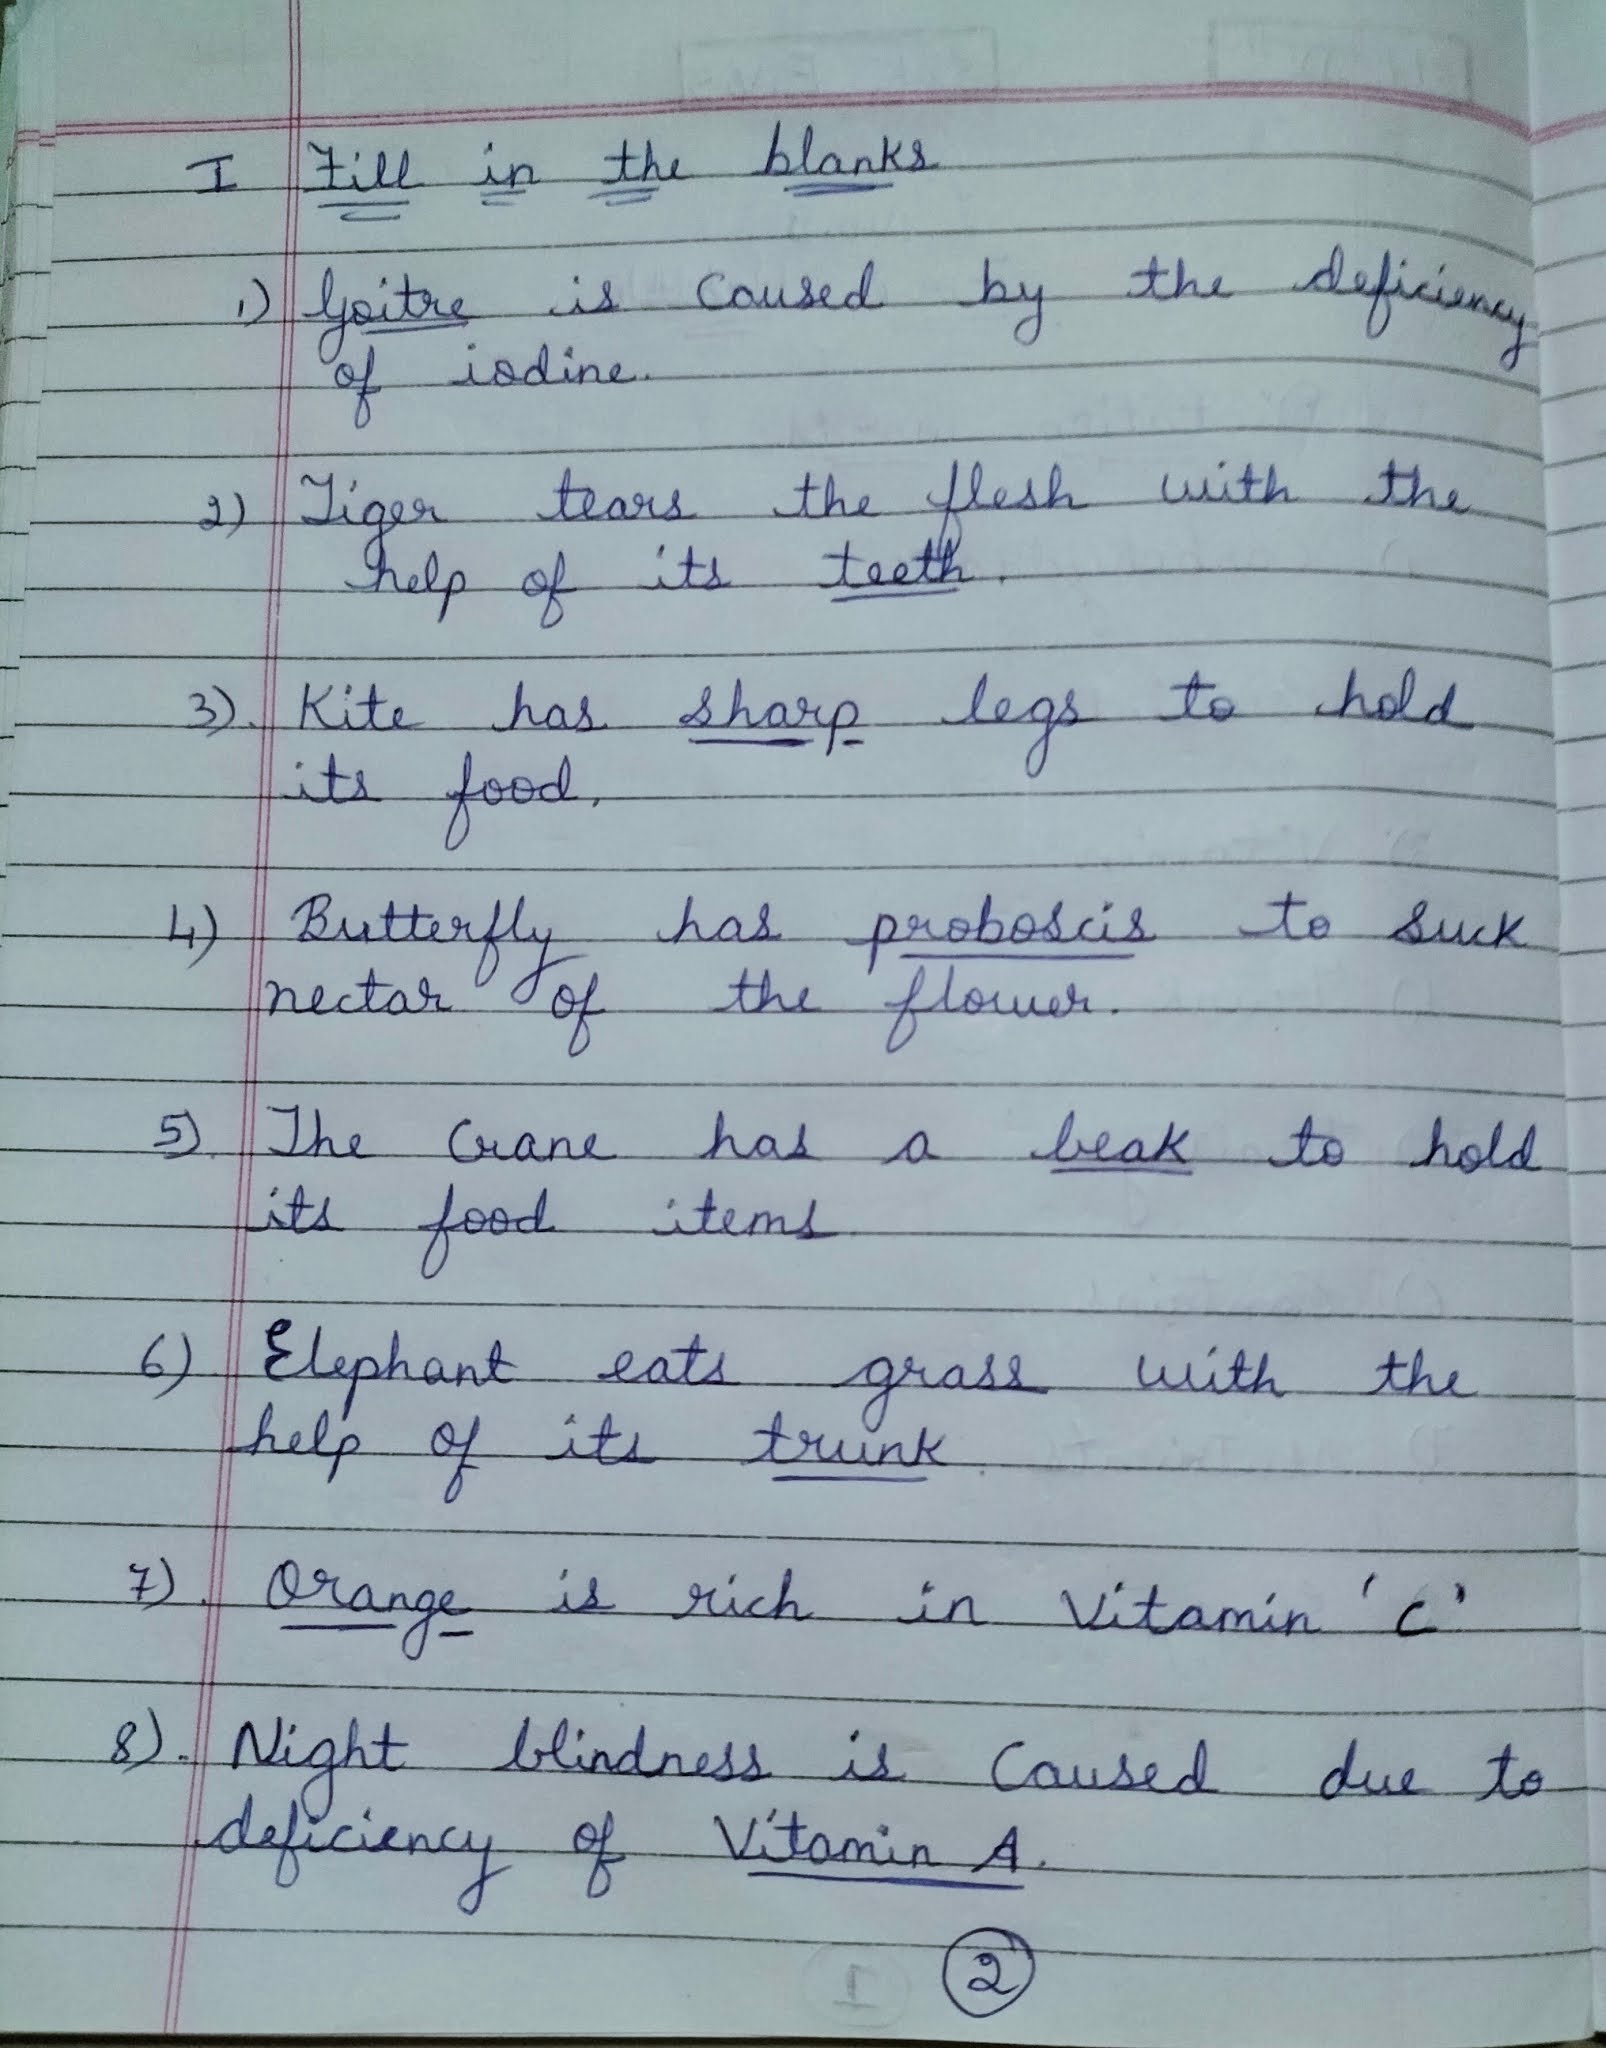 I Fill in the blanks
1) Goitre is caused by the deficiency
of iodine.
2) Tiger tears the flesh with the
help of its teeth.
3). Kite has sharp legs to hold
its food.
4) Butterfly has proboscis to suck
nectar of the flower.
5). The Crane has a beak to hold
its food items
6) Elephant eats grass with the
help of its trunk.
7). Orange is rich in Vitamin 'C'
8). Night blindness is Caused due to
deficiency of Vitamin A.
2